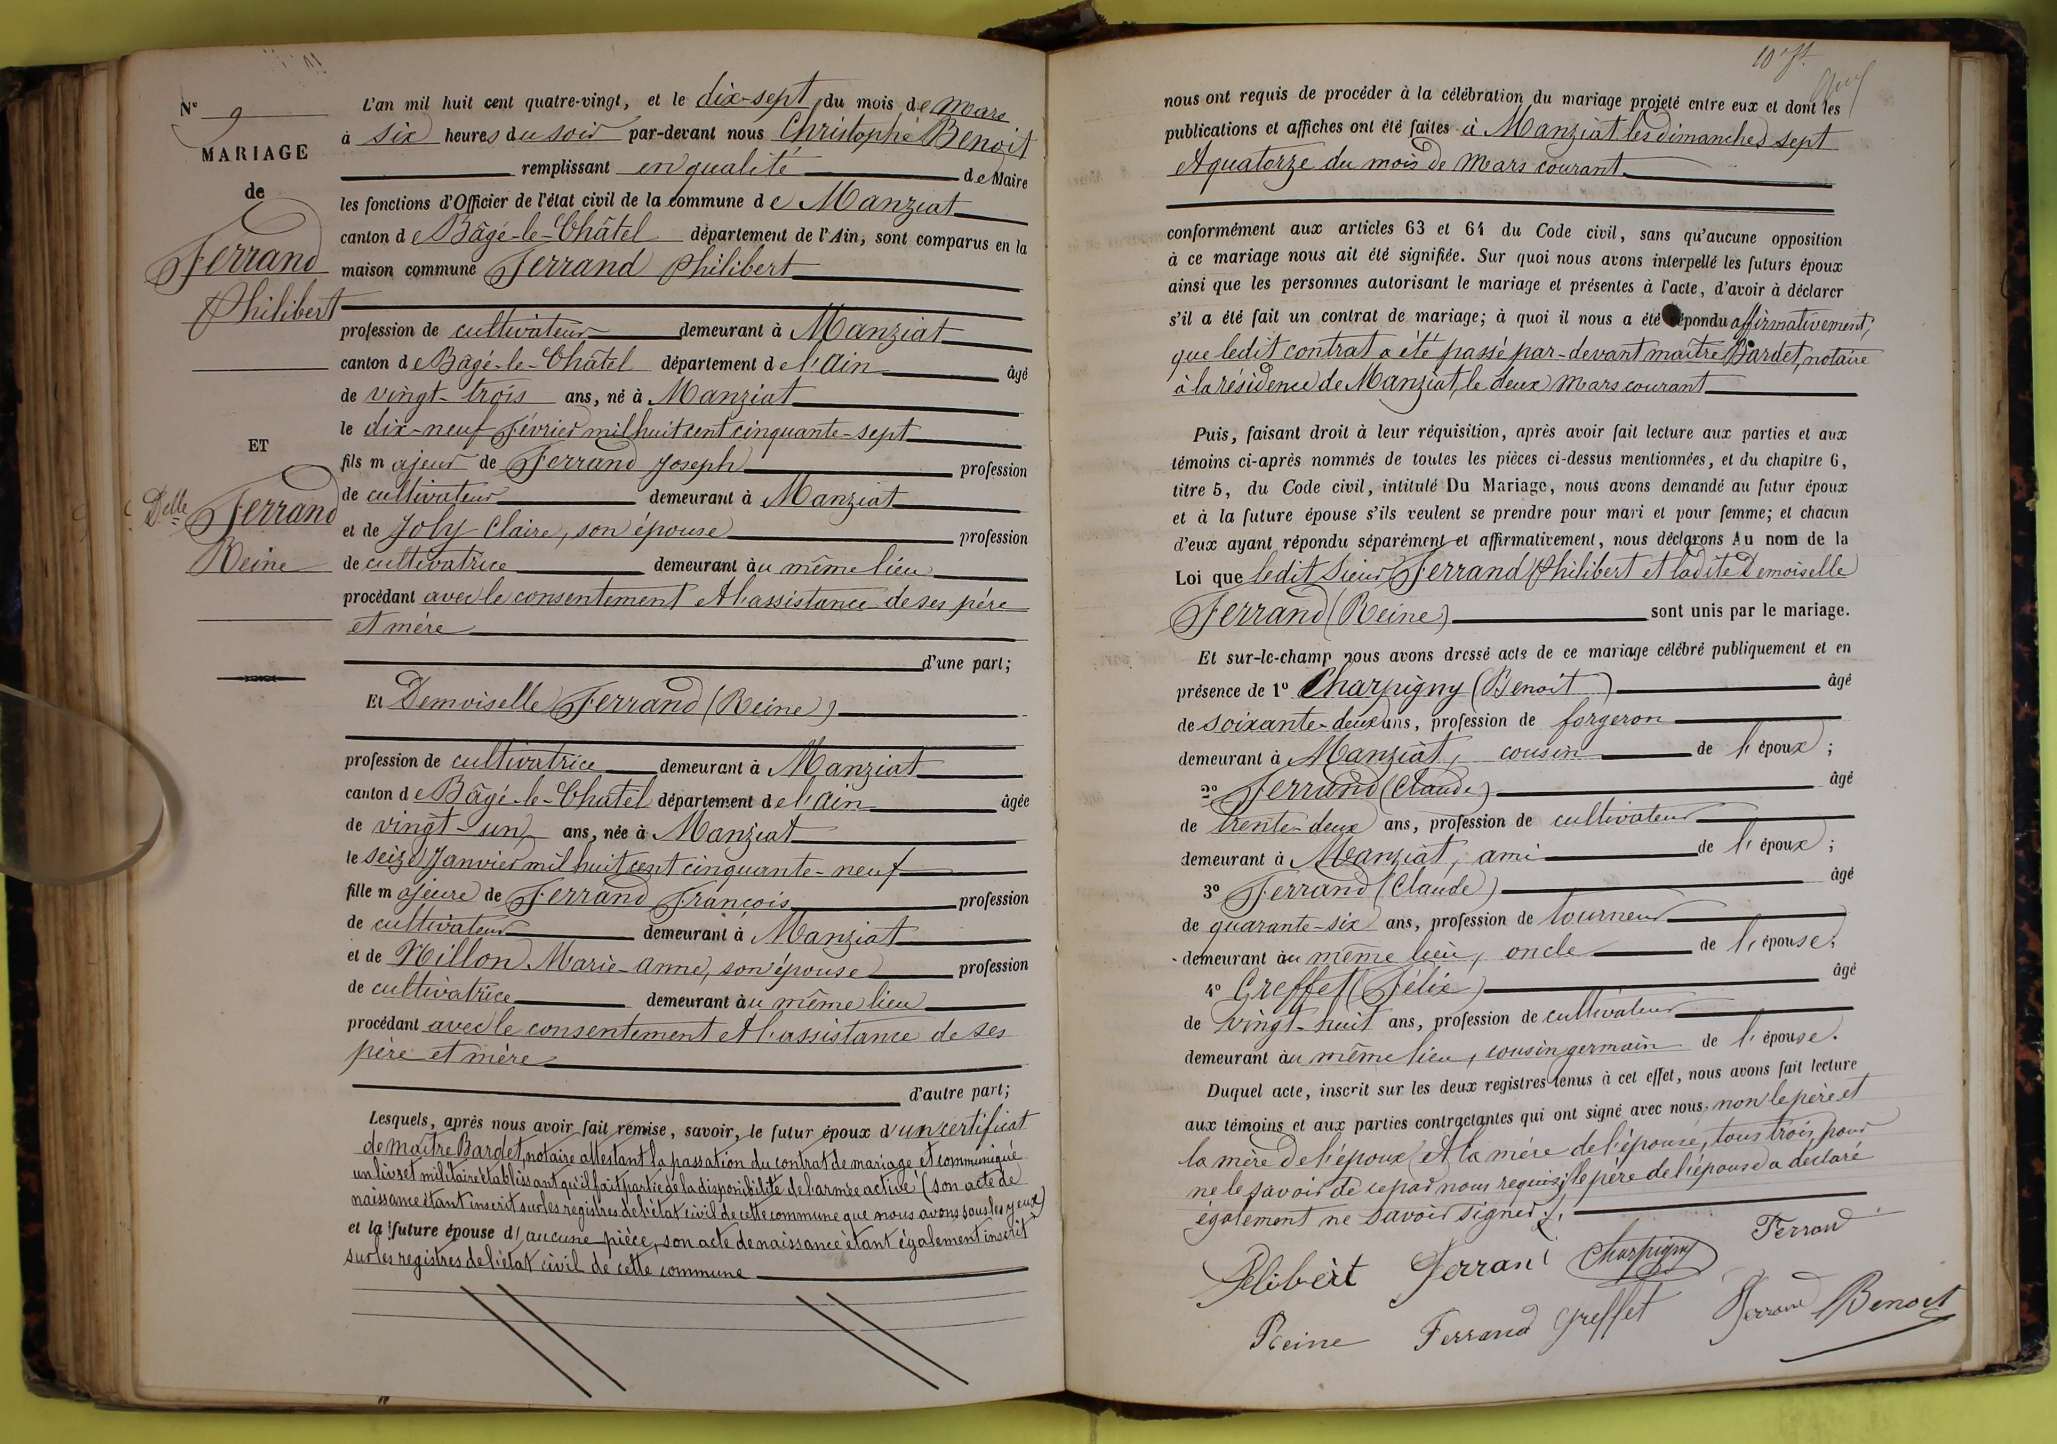 N° 9
MARIAGE
de
Ferrand
Philibert
ET
Delle Ferrand
Reine
L'an mil huit cent quatre-vingt, et le dix-sept du mois de Mars
à six heures du soir par-devant nous Christophe Benoit
remplissant en qualité de Maire
les fonctions d'Officier de l'état civil de la commune de Manziat
canton de Bâgé-le-Châtel département de l'Ain, sont comparus en la
maison commune Ferrand Philibert
profession de cultivateur demeurant à Manziat
canton de Bâgé-le-Châtel département de l'Ain âgé
de vingt-trois ans, né à Manziat
le dix-neuf Février mil huit cent cinquante-sept
fils majeur de Ferrand Joseph profession
de cultivateur demeurant à Manziat
et de Joly Claire, son épouse profession
de cultivatrice demeurant au même lieu
procédant avec le consentement et l'assistance de ses père
et mère
d'une part;
Et Demoiselle Ferrand (Reine)
profession de cultivatrice demeurant à Manziat
canton de Bâgé-le-Châtel département de l'Ain âgée
de vingt-un ans, née à Manziat
le seize Janvier mil huit cent cinquante-neuf
fille majeure de Ferrand François profession
de cultivateur demeurant à Manziat
et de Nillon Marie-Anne, son épouse profession
de cultivatrice demeurant au même lieu
procédant avec le consentement et l'assistance de ses
père et mère
d'autre part;
Lesquels, après nous avoir fait remise, savoir, le futur époux d'un certificat
de maître Bardet, notaire attestant la passation du contrat de mariage et communiqué
un livret militaire établissant qu'il fait partie de la disponibilité de l'armée active (son acte de
naissance étant inscrit sur les registres de l'état civil de cette commune que nous avons sous les yeux)
et la future épouse d'aucune pièce, son acte de naissance étant également inscrit
sur les registres de l'état civil de cette commune
nous ont requis de procéder à la célébration du mariage projeté entre eux et dont les
publications et affiches ont été faites à Manziat les dimanches sept
et quatorze du mois de Mars courant
conformément aux articles 63 et 64 du Code civil, sans qu'aucune opposition
à ce mariage nous ait été signifiée. Sur quoi nous avons interpellé les futurs époux
ainsi que les personnes autorisant le mariage et présentes à l'acte, d'avoir à déclarer
s'il a été fait un contrat de mariage; à quoi il nous a été répondu affirmativement,
que ledit contrat a été passé par-devant maître Bardet, notaire
à la résidence de Manziat, le deux Mars courant
Puis, faisant droit à leur réquisition, après avoir fait lecture aux parties et aux
témoins ci-après nommés de toutes les pièces ci-dessus mentionnées, et du chapitre 6,
titre 5, du Code civil, intitulé Du Mariage, nous avons demandé au futur époux
et à la future épouse s'ils veulent se prendre pour mari et pour femme; et chacun
d'eux ayant répondu séparément et affirmativement, nous déclarons Au nom de la
Loi que ledit Sieur Ferrand Philibert et ladite Demoiselle
Ferrand (Reine) sont unis par le mariage.
Et sur-le-champ nous avons dressé acte de ce mariage célébré publiquement et en
présence de 1° Charpigny (Benoit) âgé
de soixante-deux ans, profession de forgeron
demeurant à Manziat, cousin de l'époux;
2° Ferrand (Claude) âgé
de trente-deux ans, profession de cultivateur
demeurant à Manziat, ami de l'époux;
3° Ferrand (Claude) âgé
de quarante-six ans, profession de tourneur
demeurant au même lieu, oncle de l'épouse;
4° Greffet (Félix) âgé
de vingt-huit ans, profession de cultivateur
demeurant au même lieu, cousin germain de l'épouse.
Duquel acte, inscrit sur les deux registres tenus à cet effet, nous avons fait lecture
aux témoins et aux parties contractantes qui ont signé avec nous, non le père et
la mère de l'époux et la mère de l'épouse, tous trois pour
ne le savoir de ce par nous requis; le père de l'épouse a déclaré
également ne savoir signer.
Ferrand Charpigny Ferrand
Reine Ferrand Greffet Ferrand Benoit